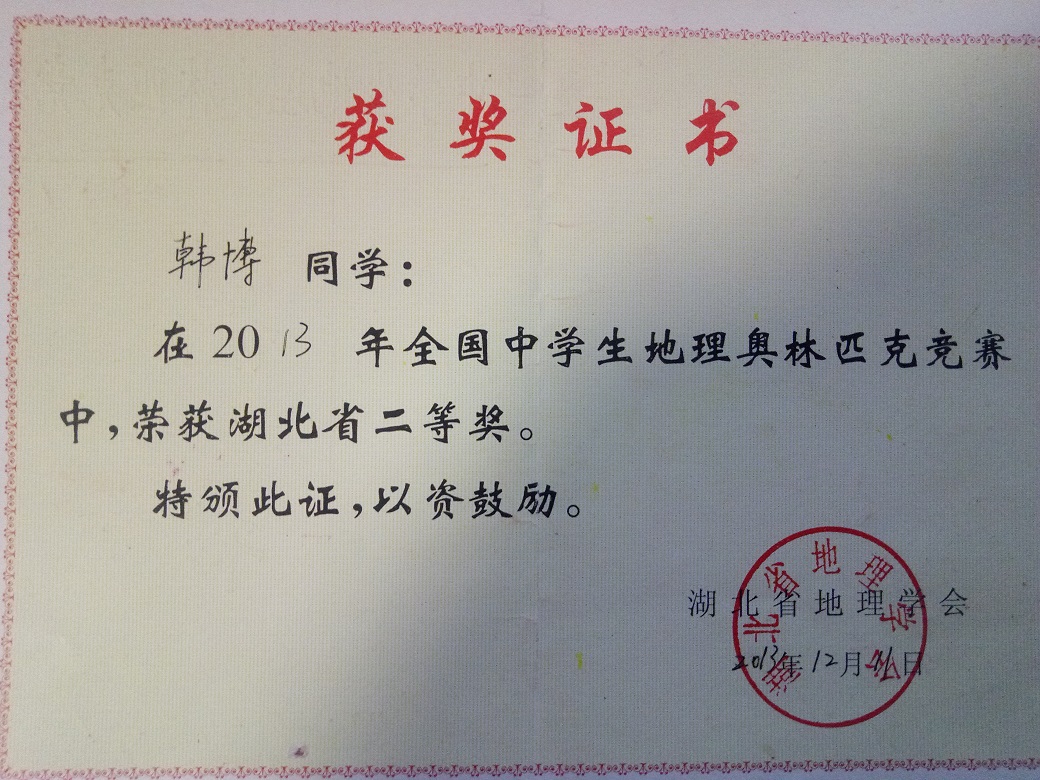 获奖证书
韩博 同学：
在2013年全国中学生地理奥林匹克竞赛
中，荣获湖北省二等奖。
特颁此证，以资鼓励。
湖北省地理学会
2013年12月11日
湖北省地理学会